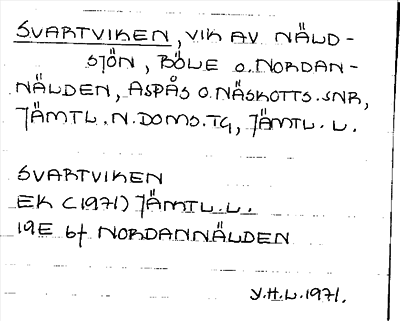 SVARTVIKEN, VIK AV NÄLD-
SJÖN, BÖLE O. NORDAN-
NÄLDEN, ASPÅS O. NÄSKOTTS. SNR,
JÄMTL. N. DOMS. TG, JÄMTL. L.
SVARTVIKEN
EK (1971) JÄMTL. L.
19E 6f NORDANNÄLDEN
Y.H.L. 1971.